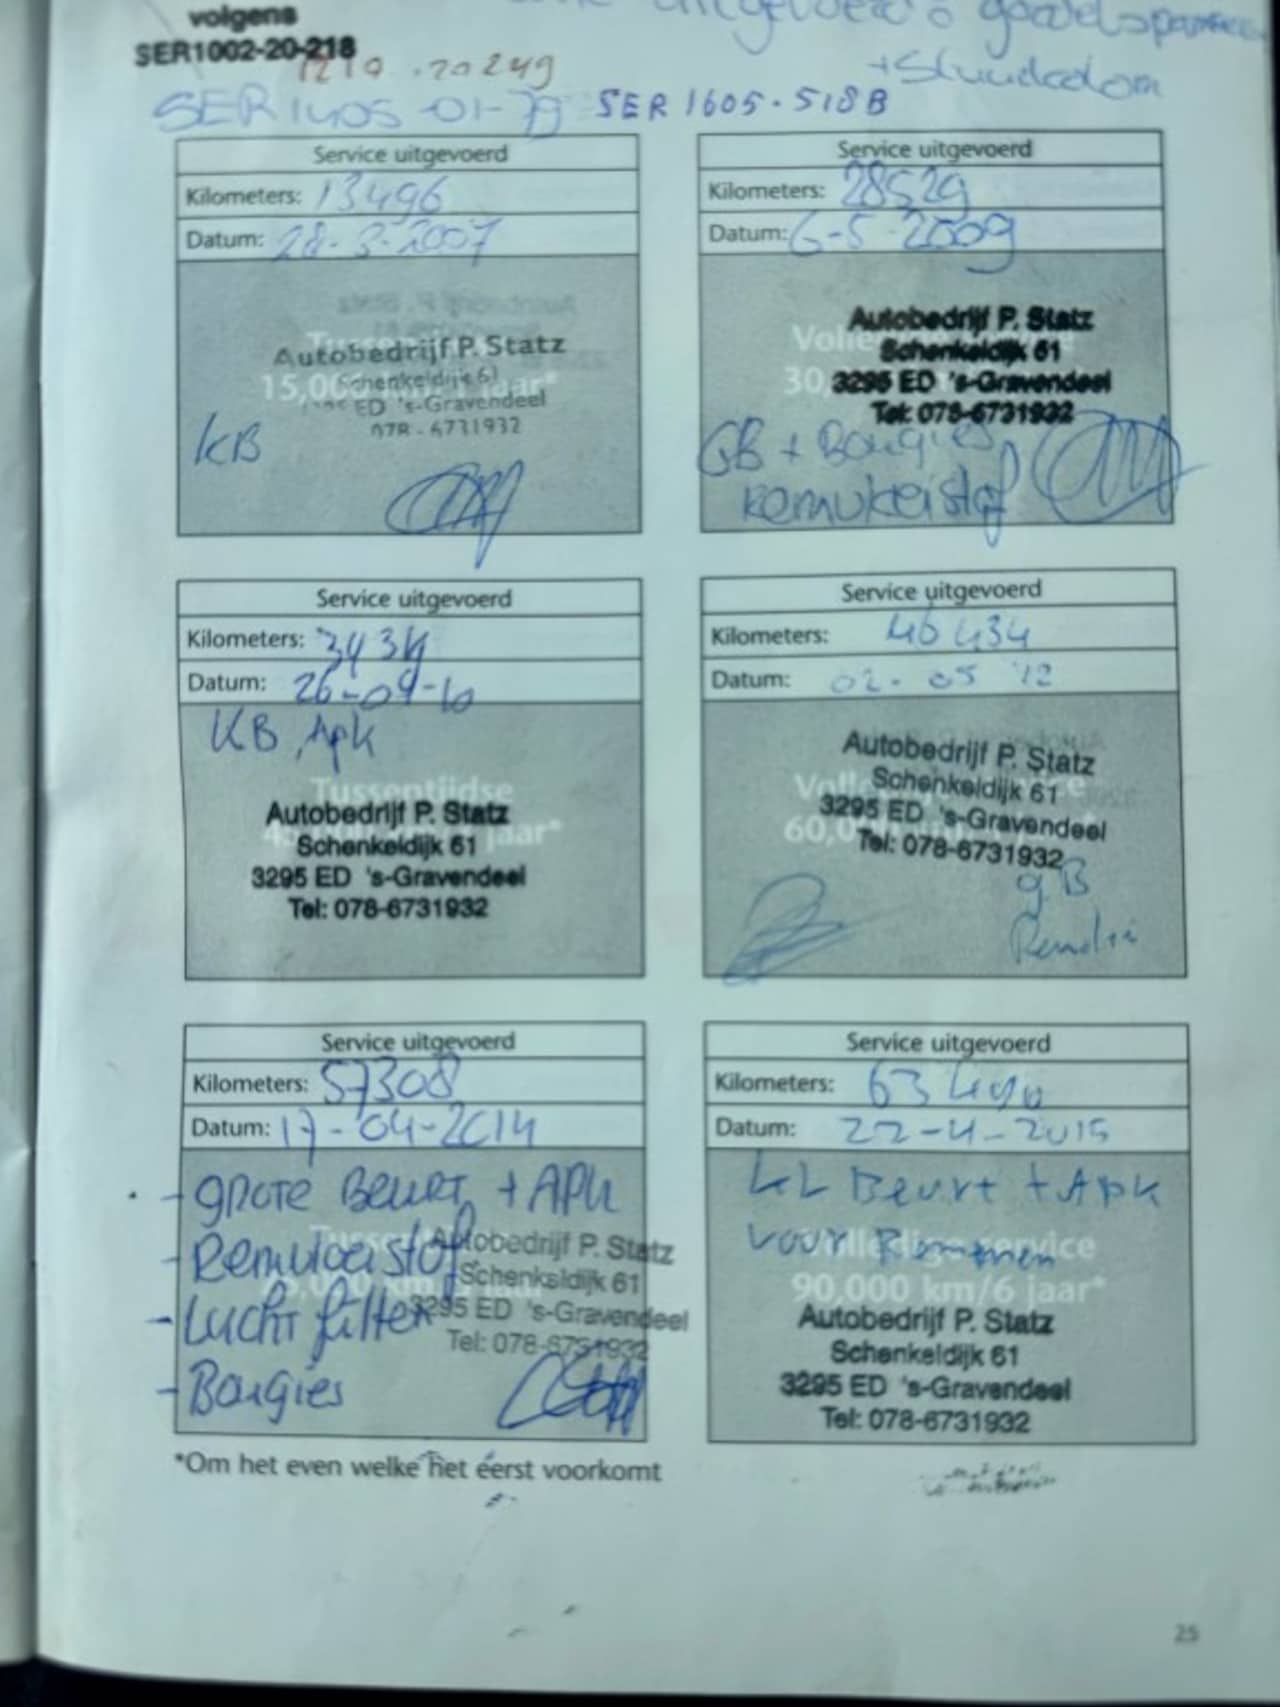 volgens
uitgevoerd
SER1002-20-218
+
SER1405-01-79 SER 1605-518B
Service uitgevoerd
Kilometers: 13496
Datum: 28-3-2007
Autobedrijf P. Statz
15,0 jaar*
Schenkeldijk 61
ED 's-Gravendeel
078-6731932
KB
Service uitgevoerd
Kilometers: 28529
Datum: 6-5-2009
Autobedrijf P. Statz
Schenkeldijk 61
3295 ED 's-Gravendeel
Tel: 078-6731932
GB + Bougies
Remvloeistof
Service uitgevoerd
Kilometers:
Datum: 26-04-10
KB, Apk
Tussentijdse
Autobedrijf P. Statz
jaar*
Schenkeldijk 61
3295 ED 's-Gravendeel
Tel: 078-6731932
Service uitgevoerd
Kilometers: 46434
Datum: 02-05 '12
Autobedrijf P. Statz
Schenkeldijk 61
3295 ED 's-Gravendeel
60,0
Tel: 078-6731932
gB
Service uitgevoerd
Kilometers: 57308
Datum: 17-04-2014
- grote Beurt + APK
- Remvloeistof
Autobedrijf P. Statz
Schenkeldijk 61
- Lucht filter
3295 ED 's-Gravendeel
Tel: 078-6731932
- Bougies
Service uitgevoerd
Kilometers: 63490
Datum: 22-4-2015
KL Beurt + Apk
voor Remmen
Volledige service
90,000 km/6 jaar*
Autobedrijf P. Statz
Schenkeldijk 61
3295 ED 's-Gravendeel
Tel: 078-6731932
*Om het even welke het eerst voorkomt
25